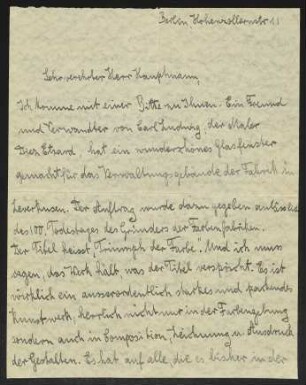 Berlin Hohenzollernstr 11
Sehr verehrter Herr Hauptmann,
Ich komme mit einer Bitte zu Ihnen. Ein Freund
und Verwandter von Carl Ludwig, der Maler
Diez Edzard, hat ein wunderschönes Glasfenster
gemacht für das Verwaltungsgebäude der Fabrik in
Leverkusen. Der Auftrag wurde darin gegeben anlässlich
des 100. Todestages des Gründers der Farbenfabriken.
Der Titel heisst, "Triumph der Farbe". Und ich muss
sagen, das Werk hält was der Titel verspricht. Es ist
wirklich ein ausserordentlich starkes und packendes
Kunstwerk, herrlich nicht nur in der Farbengebung
sondern auch in Composition, Zeichnung u. Ausdruck
der Gestalten. Es hat auf alle, die es bisher in der